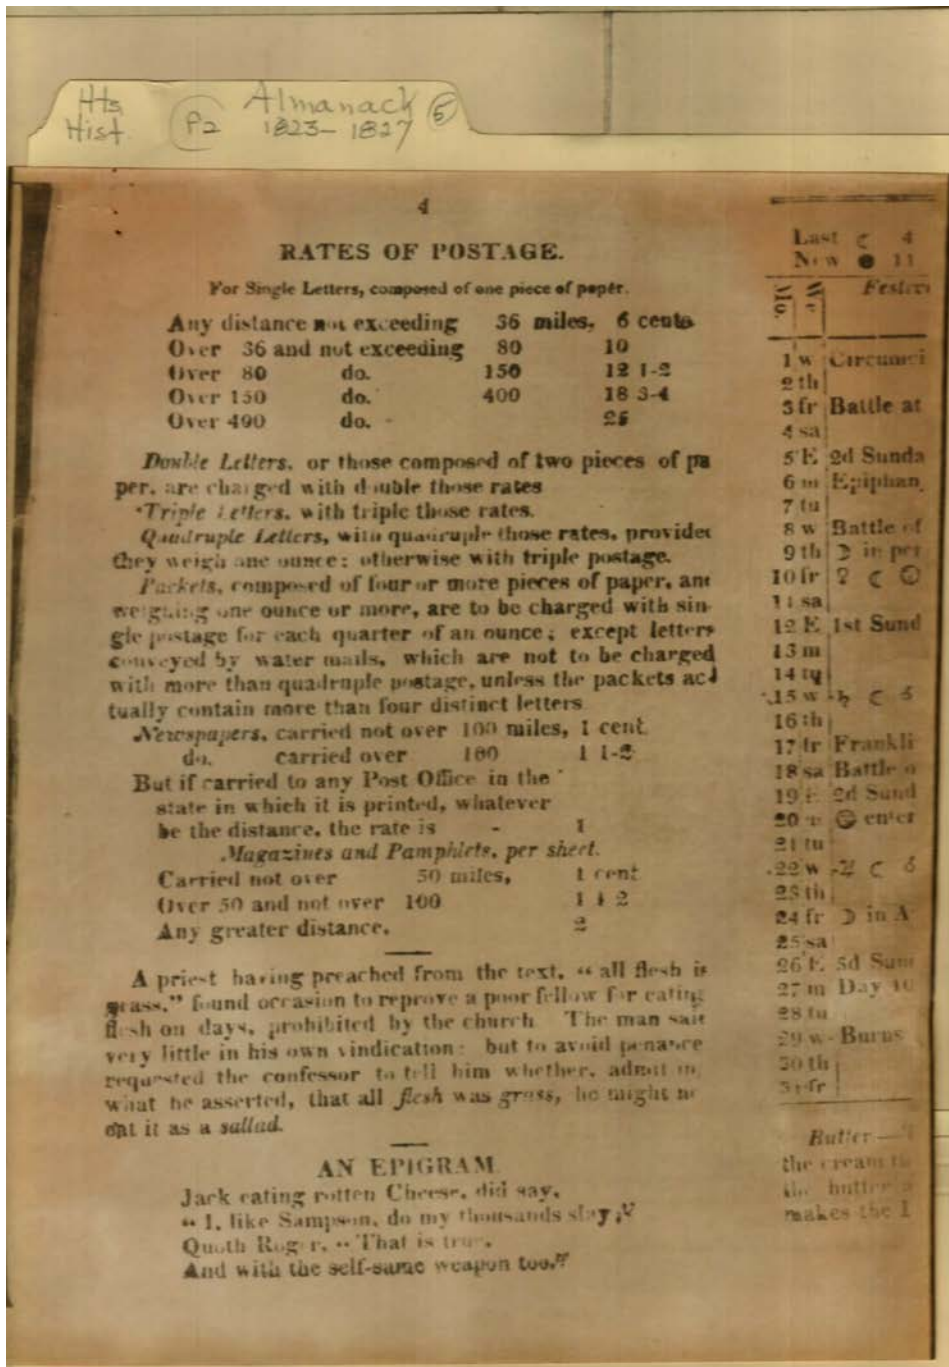 Hts
Hist
P2
Almanack
1823-1827
5
4
RATES OF POSTAGE.
For Single Letters, composed of one piece of paper.
Any distance not exceeding 36 miles, 6 cents
Over 36 and not exceeding 80 10
Over 80 do. 150 12 1-2
Over 150 do. 400 18 3-4
Over 400 do. - 25
Double Letters, or those composed of two pieces of pa
per, are charged with double those rates
Triple Letters, with triple those rates.
Quadruple Letters, with quadruple those rates, provided
they weigh one ounce; otherwise with triple postage.
Packets, composed of four or more pieces of paper, and
weighing one ounce or more, are to be charged with sin-
gle postage for each quarter of an ounce; except letters
conveyed by water mails, which are not to be charged
with more than quadruple postage, unless the packets ac-
tually contain more than four distinct letters
Newspapers, carried not over 100 miles, 1 cent.
do. carried over 100 1 1-2
But if carried to any Post Office in the
state in which it is printed, whatever
be the distance, the rate is - 1
Magazines and Pamphlets, per sheet.
Carried not over 50 miles, 1 cent
Over 50 and not over 100 1 1 2
Any greater distance, 2
A priest having preached from the text, "all flesh is
grass," found occasion to reprove a poor fellow for eating
flesh on days, prohibited by the church The man said
very little in his own vindication: but to avoid penance
requested the confessor to tell him whether, admit in
what he asserted, that all flesh was grass, he might n
eat it as a sallad.
AN EPIGRAM
Jack eating rotten Cheese, did say,
"I, like Sampson, do my thousands slay;"
Quoth Roger, "That is true,
And with the self-same weapon too."
Last ☾ 4
New ● 11
Mo. We. Festiv
1 w Circumci
2 th
3 fr Battle at
4 sa
5 E 2d Sunda
6 m Epiphan
7 tu
8 w Battle of
9 th ☽ in per
10 fr ♀ ☾
11 sa
12 E 1st Sund
13 m
14 tu
15 w ♄ ☾ 6
16 th
17 fr Frankli
18 sa Battle o
19 E 2d Sund
20 m enter
21 tu
22 w ☾ 6
23 th
24 fr ☽ in A
25 sa
26 E 3d Sun
27 m Day 10
28 tu
29 w Burns
30 th
31 fr
Butter.—
the cream
the butter
makes the